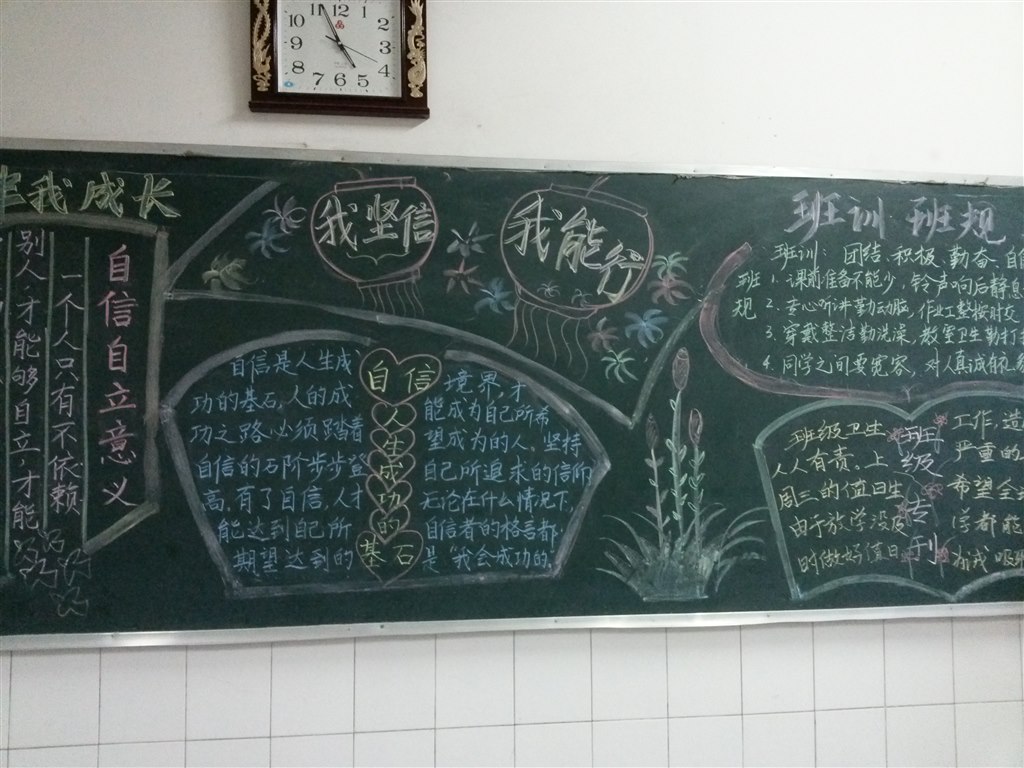 我成长
自信自立意义
一个人只有不依赖
别人，才能够自立，才能
我坚信
我能行
自信人生成功的基石
自信是人生成
功的基石。人的成
功之路必须踏着
自信的石阶步步登
高。有了自信，人才
能达到自己所
期望达到的
境界，才
能成为自己所希
望成为的人。坚持
自己所追求的信所
无论在什么情况下，
自信者的格言都
是“我会成功的”
班训 班规
班训：团结 积极 勤奋 自
班规
1. 课前准备不能少，铃声响后静息
2. 专心听讲勤动脑，作业工整按时交
3. 穿戴整洁勤洗澡，教室卫生勤打
4. 同学之间要宽容，对人真诚有礼
班级专刊
班级卫生
人人有责。上
周三的值日生
由于放学没及
时做好值日
工作，造
严重的
希望全
学都能
为戒
11 12 1
10 2
9 3
8 4
7 6 5